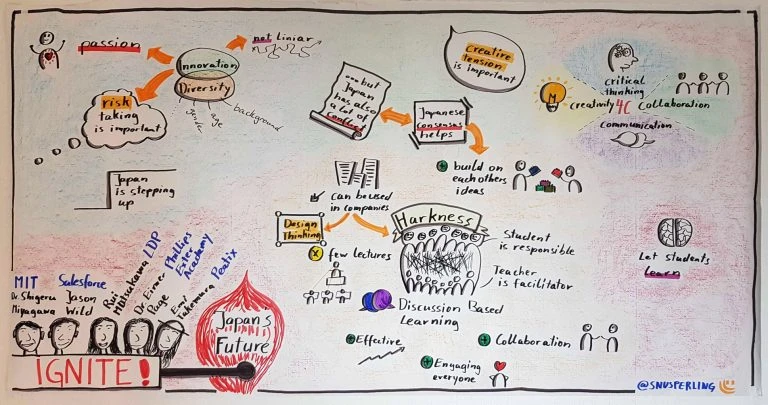 passion
not liniar
Innovation
Diversity
gender
age
background
risk
taking
is important
Japan
is stepping
up
...but
Japan
has also
a lot of
conflict
Japanese
consensus
helps
creative
tension
is important
critical
thinking
creativity 4C collaboration
communication
build on
each others
ideas
can be used
in companies
Design
Thinking
few lectures
Harkness
Student
is responsible
Teacher
is facilitator
Discussion Based
Learning
Effective
Collaboration
Engaging
everyone
Let students
learn
MIT
Dr. Shigeru
Miyagawa
Salesforce
Jason
Wild
LDP
Phillips
Exter
Academy
Dr. Eimer
Page
Peatix
Emi
Takemura
Japan's
Future
IGNITE!
@SNUSPERLING